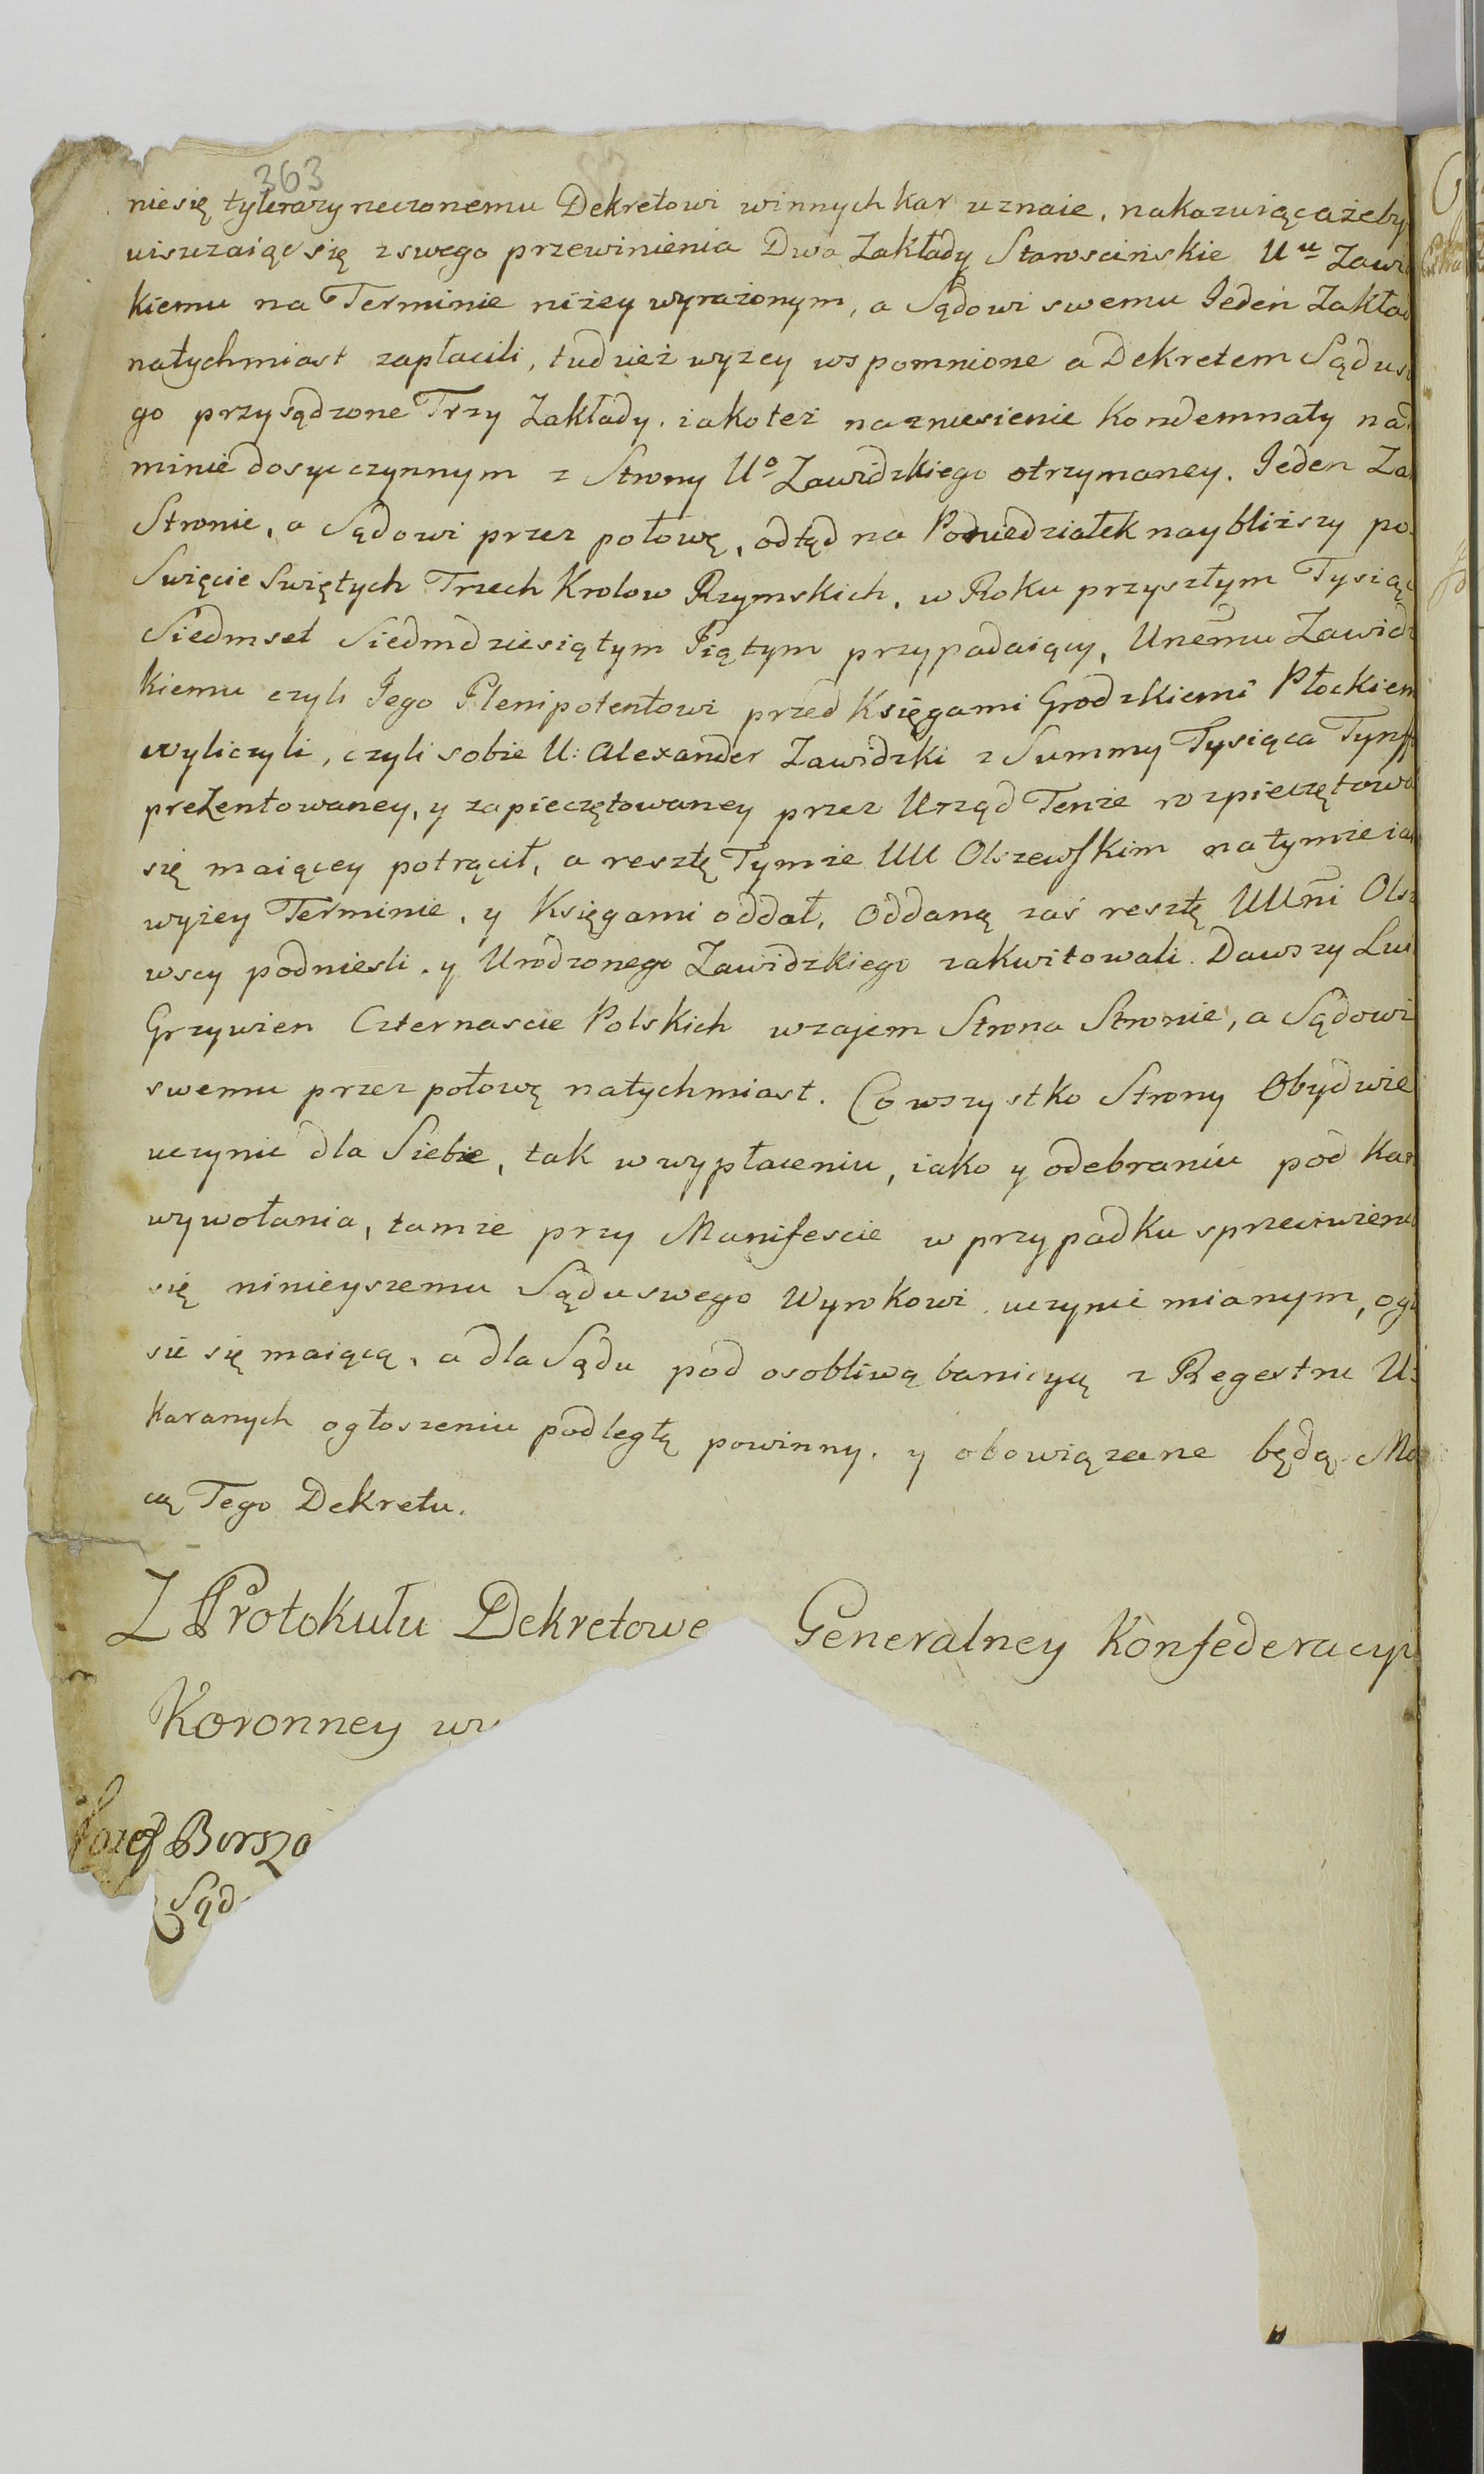 363
niesię tylerazy rzeczonemu Dekretowi winnych kar uznaie, nakazuiąc ażeby
uiszczaiąc się z swego przewinienia Dwa Zakłady Starościnskie Uu Zawi
kiemu na Terminie niżey wyrażonym, a Sądowi swemu Jeden Zakład
natychmiast zapłacili, tudzież wyzey wspomnione a Dekretem Sądu s
go przysądzone Trzy Zakłady, iakoteż na zniesienie Kondemnaty na
minie dosyc czynnym z Strony Uo Zawidzkiego otrzymaney. Jeden Za
Stronie, a Sądowi przez połowę, odtąd na Poniedziałek naybliższy po
Swięcie Swiętych Trzech Krolow Rzymskich, w Roku przyszłym Tysiąc
Siedmset Siedmdziesiątym Piątym przypadaiący, Unemu Zawidz
kiemu czyli Jego Plenipotentowi przed Księgami Grodzkiemi Płockiem
wyliczyli, czyli sobie U: Alexander Zawidzki z Summy Tysiąca Tynf
prezentowaney, y zapieczętowaney przez Urząd Tenże rozpieczętowa
się maiącey potrącił, a resztę Tymże UU Olszewskim na tymże ia
wyżey Terminie, y Księgami oddał, Oddaną zaś resztę UUni Olsz
wscy podniesli, y Urodzonego Zawidzkiego zakwitowali. Dawszy Lui
Grzywien Czternascie Polskich wzajem Strona Stronie, a Sądowi
swemu przez połowę natychmiast. Co wszystko Strony Obydwie
uczynic dla Siebie, tak w wypłaceniu, iako y odebraniu pod Kar
wywołania, tamże przy Manifescie w przypadku sprzeciwienia
się ninieyszemu Sądu swego Wyrokowi uczynic mianym, ogł
sic się maiącą, a dla Sądu pod osobliwą banicyą z Regestru U
karanych ogłoszeniu podległą powinny, y obowiązane będą Mo
cą Tego Dekretu.
Z Protokułu Dekretowe Generalney Konfederacyi
Koronney wy
Jozef Borszo
Sąd